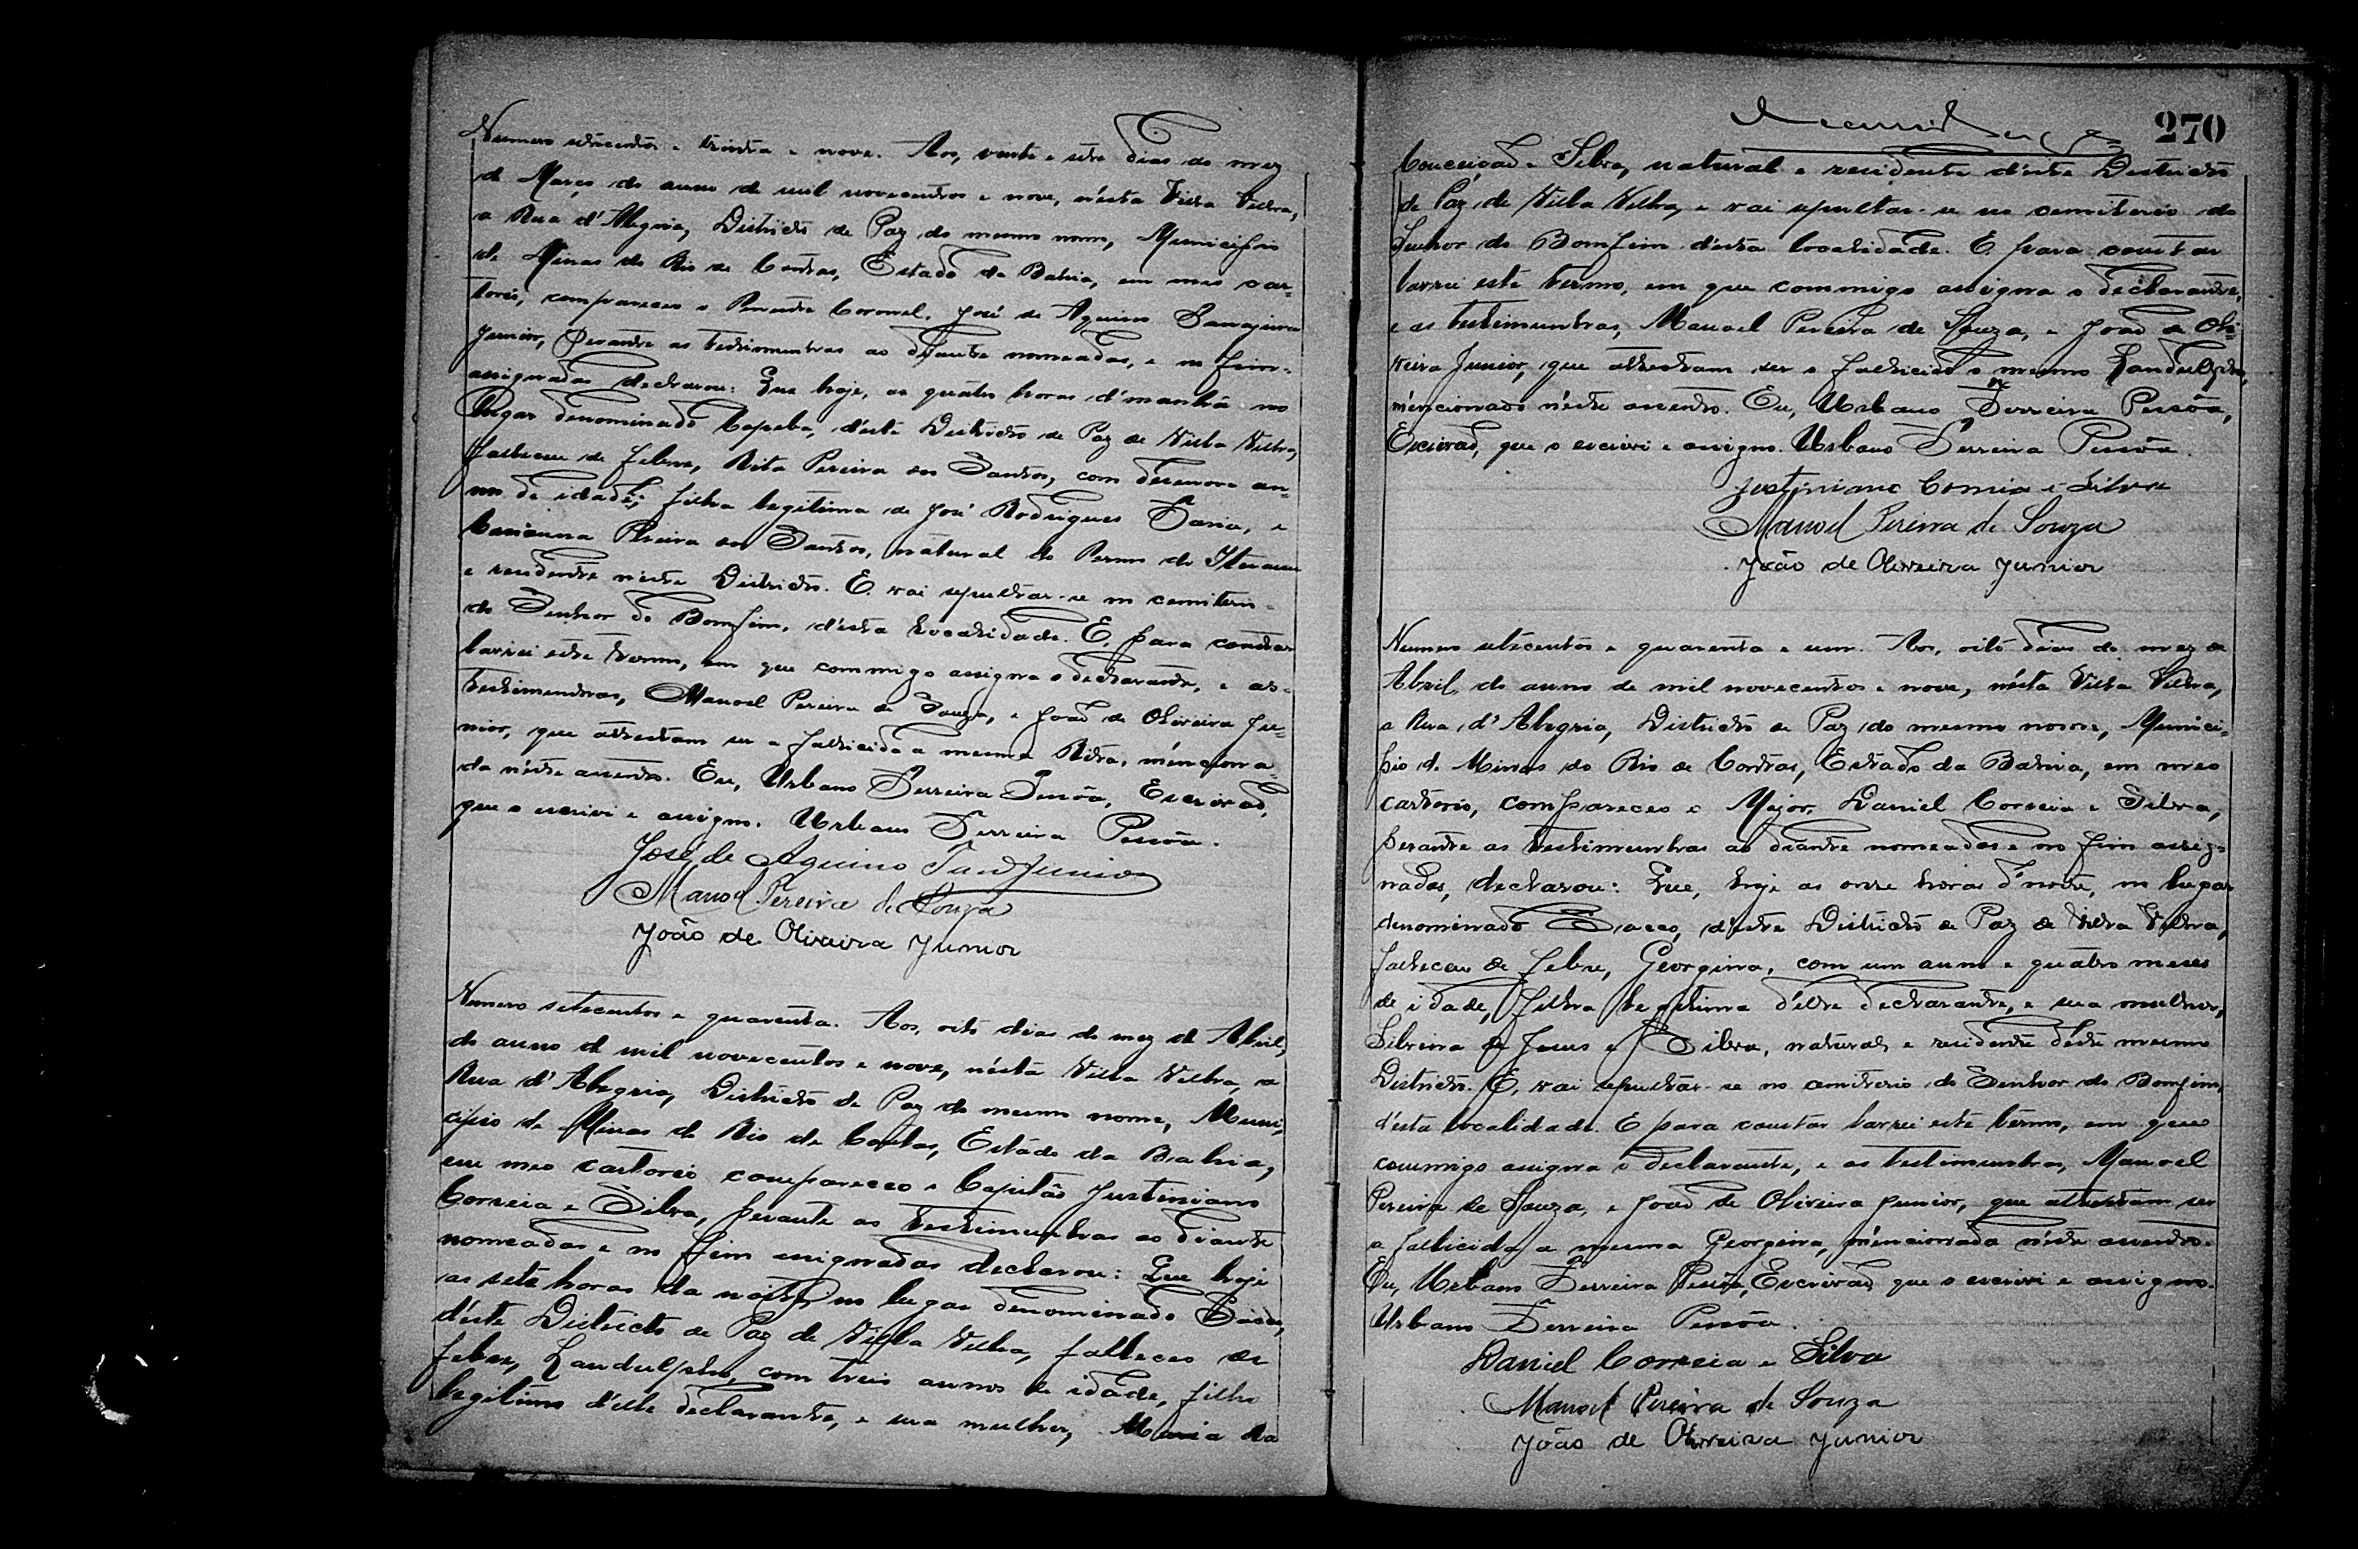 Numero setecentos e trinta e nove. Aos, vinte e sete dias do mez
de Março do anno de mil novecentos e nove, n'esta Villa Velha,
a Rua d'Alegria, Districto de Paz do mesmo nome, Municipio
de Minas do Rio de Contas, Estado da Bahia, em meo car=
torio, compareceo o Tenente Coronel, José de Aquino Tanajura
Junior, perante as testimunhas ao diante nomeadas, e no fim=
assignadas declarou: Que hoje, as quatro horas d'manhã no
lugar denominado Capeba, d'este Districto de Paz de Villa Velha,
falleceu de febre, Rita Pereira dos Santos, com desenove an=
nos de idade, filha legitima de José Rodrigues Faria, e
Pereira dos Santos, natural do Termo do
e residente n'este Districto. E. vai sepultar-se no cemiterio=
do Senhor do Bomfim, d'esta localidade. E, para constar
lavrei este termo, em que commigo assigna o declarante, e as=
testimunhas, Manoel Pereira de Souza, e João de Oliveira Ju=
nior, que attestam ser a fallicida a mesma Rita,ménciona=
da n'éste assento. Eu, Urbano Ferreira Pessôa, Escrivão,
que o escrivi e assigno. Urbano Ferreira Pessôa.
José de Aquino Tan Junior
Manoel Pereira de Souza
João de Oliveira Junior
Numero setecentos e quarenta. Aos, oito dias do mez de Abril,
do anno de mil novecentos e nove, n'ésta Villa Velha, a
Rua d'Alegria, Districto de Paz do mesmo nome, Muni=
cipio de Minas do Rio de Contas, Estado da Bahia,
em meo cartorio compareceo o Capitão Justiniano
Correia e Silva, perante as testimunhas ao diante
nomeadas e no fim assignadas declarou: Que hoje
as sete horas da noite, no lugar denominado
d'éste Districto de Paz de Villa Velha, falleceo de
febre, Landulpho, com treis annos de idade, filho
legitimo d'élle declarante, e sua mulher, Maria da
270
Conceição e Silva, natural e residente d'éste Districto
de Paz de Villa Velha, e vai sepultar-se no cemiterio do
Senhor do Bomfim d'ésta localidade. E para constar
lavrei este termo, em que commigo assigna o declarante,
e as testimunhas, Manoel Pereira de Souza, e João de Oli=
veira Junior, que attestam ser o fallicido o mesmo Landulpho,
méncionado n'éste assento. Eu, Urbano Ferreira Pessôa,
Escrivão, que o escrivi e assigno. Urbano Ferreira Pessôa.
Justiniano Correia e Silva
Manoel Pereira de Souza
João de Oliveira Junior
Numero setecentos e quarenta e um. Aos, oito dias do mez de
Abril, do anno de mil novecentos e nove, n'ésta Villa Velha,
a Rua d'Alegria, Districto de Paz do mesmo nome, Munici=
pio de Minas do Rio de Contas, Estado da Bahia, em meo
cartorio, compareceo o Major, Daniel Correia e Silva,
perante as testimunhas ao diante nomeadas e no fim assig=
nadas, declarou: Que, hoje as onze horas d'noite, no lugar
denominado Sacco, d'éste Districto de Paz de Villa Velha,
falleceu de febre, Georgina, com um anno e quatro meses
de idade, filha legitima d'élle declarante, e sua mulher,
Silvina de Jesus e Silva, natural, e residente déste mesmo
Districto. E, vai sepultar-se no cemiterio do Senhor do Bomfim,
d'ésta localidade. E para constar lavrei este termo, em que
commigo assigna o declarante, e as testimunhas, Manoel
Pereira de Souza, e João de Oliveira Junior, que attestam ser
a fallicida a mesma Georgina, méncionada n'éste assento.
Eu, Urbano Ferreira Pessôa, Escrivão, que o escrivi e assigno.
Urbano Ferreira Pessôa.
Daniel Correia e Silva
Manoel Pereira de Souza
João de Oliveira Junior